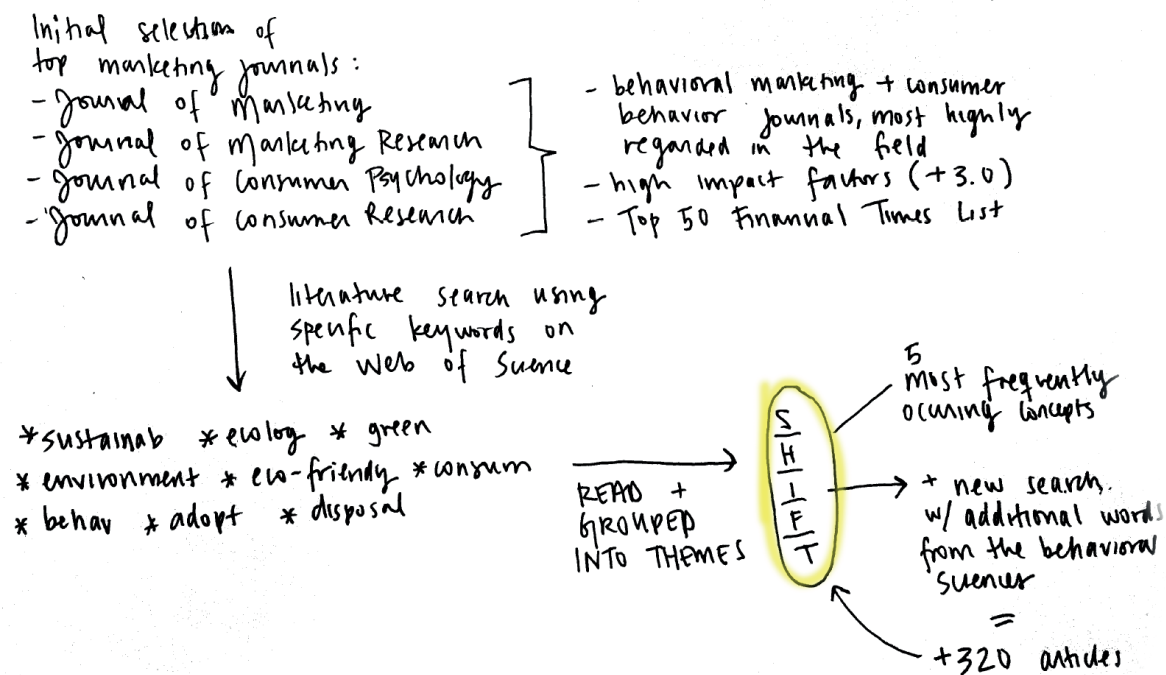 Initial selection of
top marketing journals:
- Journal of Marketing
- Journal of Marketing Research
- Journal of Consumer Psychology
- Journal of Consumer Research
- behavioral marketing + consumer
behavior journals, most highly
regarded in the field
- high impact factors (+3.0)
- Top 50 Financial Times List
literature search using
specific keywords on
the Web of Science
*sustainab *ecolog * green
* environment * eco-friendy *consum
* behav * adopt * disposal
READ +
GROUPED
INTO THEMES
S
H
I
F
T
5
most frequently
occuring concepts
+ new search.
w/ additional words
from the behavioral
sciences
=
+320 articles